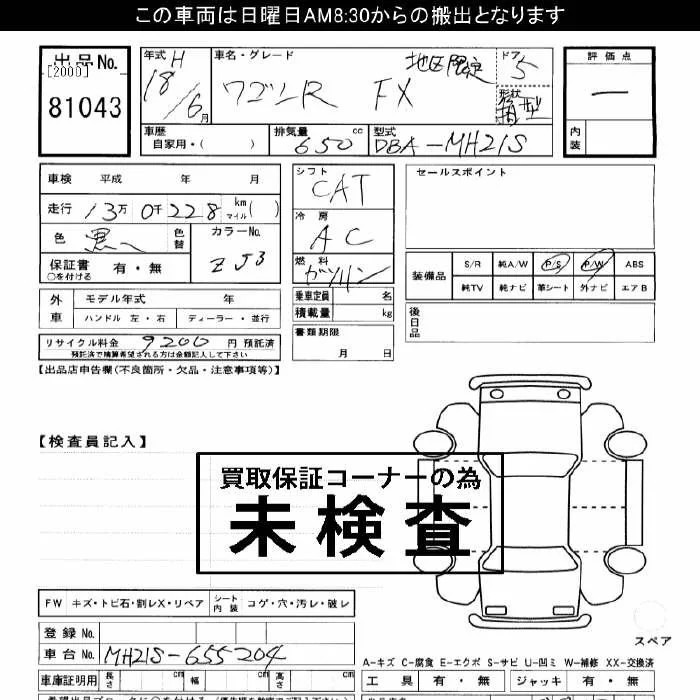 この車両は日曜日AM8:30からの搬出となります
出品No.
[2000]
81043
年式 H
18/6月
車名・グレード
ワゴンR FX 地区限定
ドア
5
形状
箱型
評価点
一
内装
車歴
自家用・( )
排気量 cc
650
型式
DBA-MH21S
車検 平成 年 月
走行 13万0千228 km マイル( )
色 黒へ 色替
カラーNo.
ZJ3
保証書 有・無
○を付ける
シフト
CAT
冷房
AC
燃料
ガソリン
乗車定員 名
積載量 kg
書類期限
月 日
セールスポイント
装備品
S/R 純A/W P/S P/W ABS
純TV 純ナビ 革シート 外ナビ エアB
後日品
外車
モデル年式 年
ハンドル 左・右 ディーラー・並行
リサイクル料金 9200 円 預託済
預託済で精算希望される方は金額記入して下さい
【出品店申告欄(不良箇所・欠品・注意事項等)】
【検査員記入】
買取保証コーナーの為
未検査
FW キズ・トビ石・割レX・リペア シート内装 コゲ・穴・汚レ・破レ
登録No.
車台No. MH21S-655204
スペア
A-キズ C-腐食 E-エクボ S-サビ U-凹ミ W-補修 XX-交換済
車庫証明用 長さ cm 幅 cm 高さ cm
工具 有・無 ジャッキ 有・無